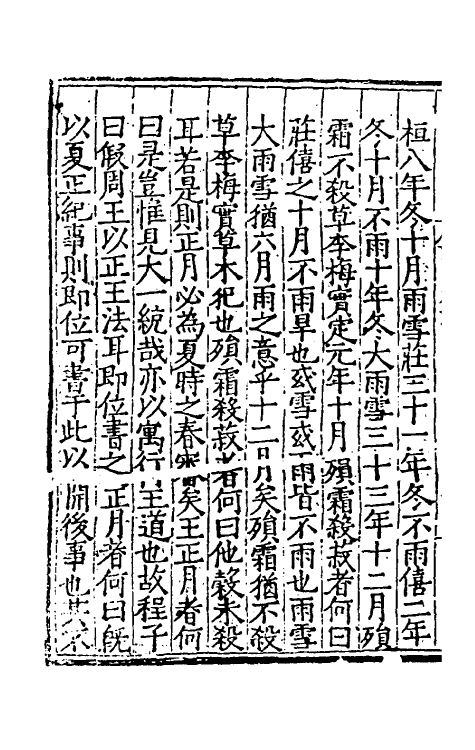 桓八年冬十月雨雪莊三十一年冬不雨僖二年
冬十月不雨十年冬大雨雪三十三年十二月殞
霜不殺草李梅實定元年十月殞霜殺菽者何曰
莊僖之十月不雨旱也或雪或雨皆不雨也雨雪
大雨雪猶六月雨之意乎十二月矣殞霜猶不殺
草李梅實草木犯也殞霜殺菽者何曰他榖未殺
耳若是則正月必為夏時之春審矣王正月者何
曰是豈惟見大一統哉亦以寓行王道也故程子
曰假周王以正王法耳即位書之正月者何曰既
以夏正紀事則即位可書于此以開後事也其不